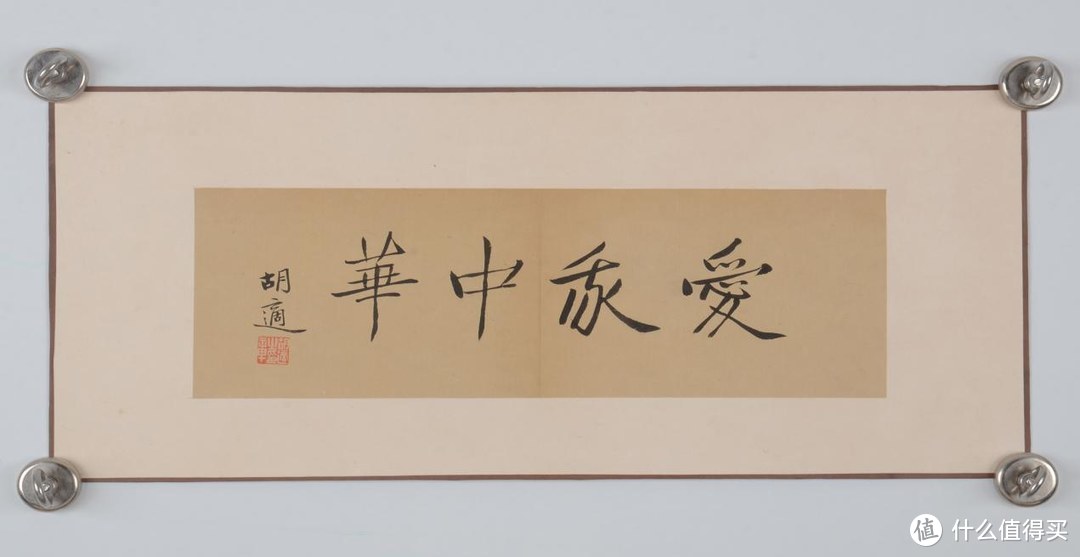 愛我中華
胡適
值 什么值得买